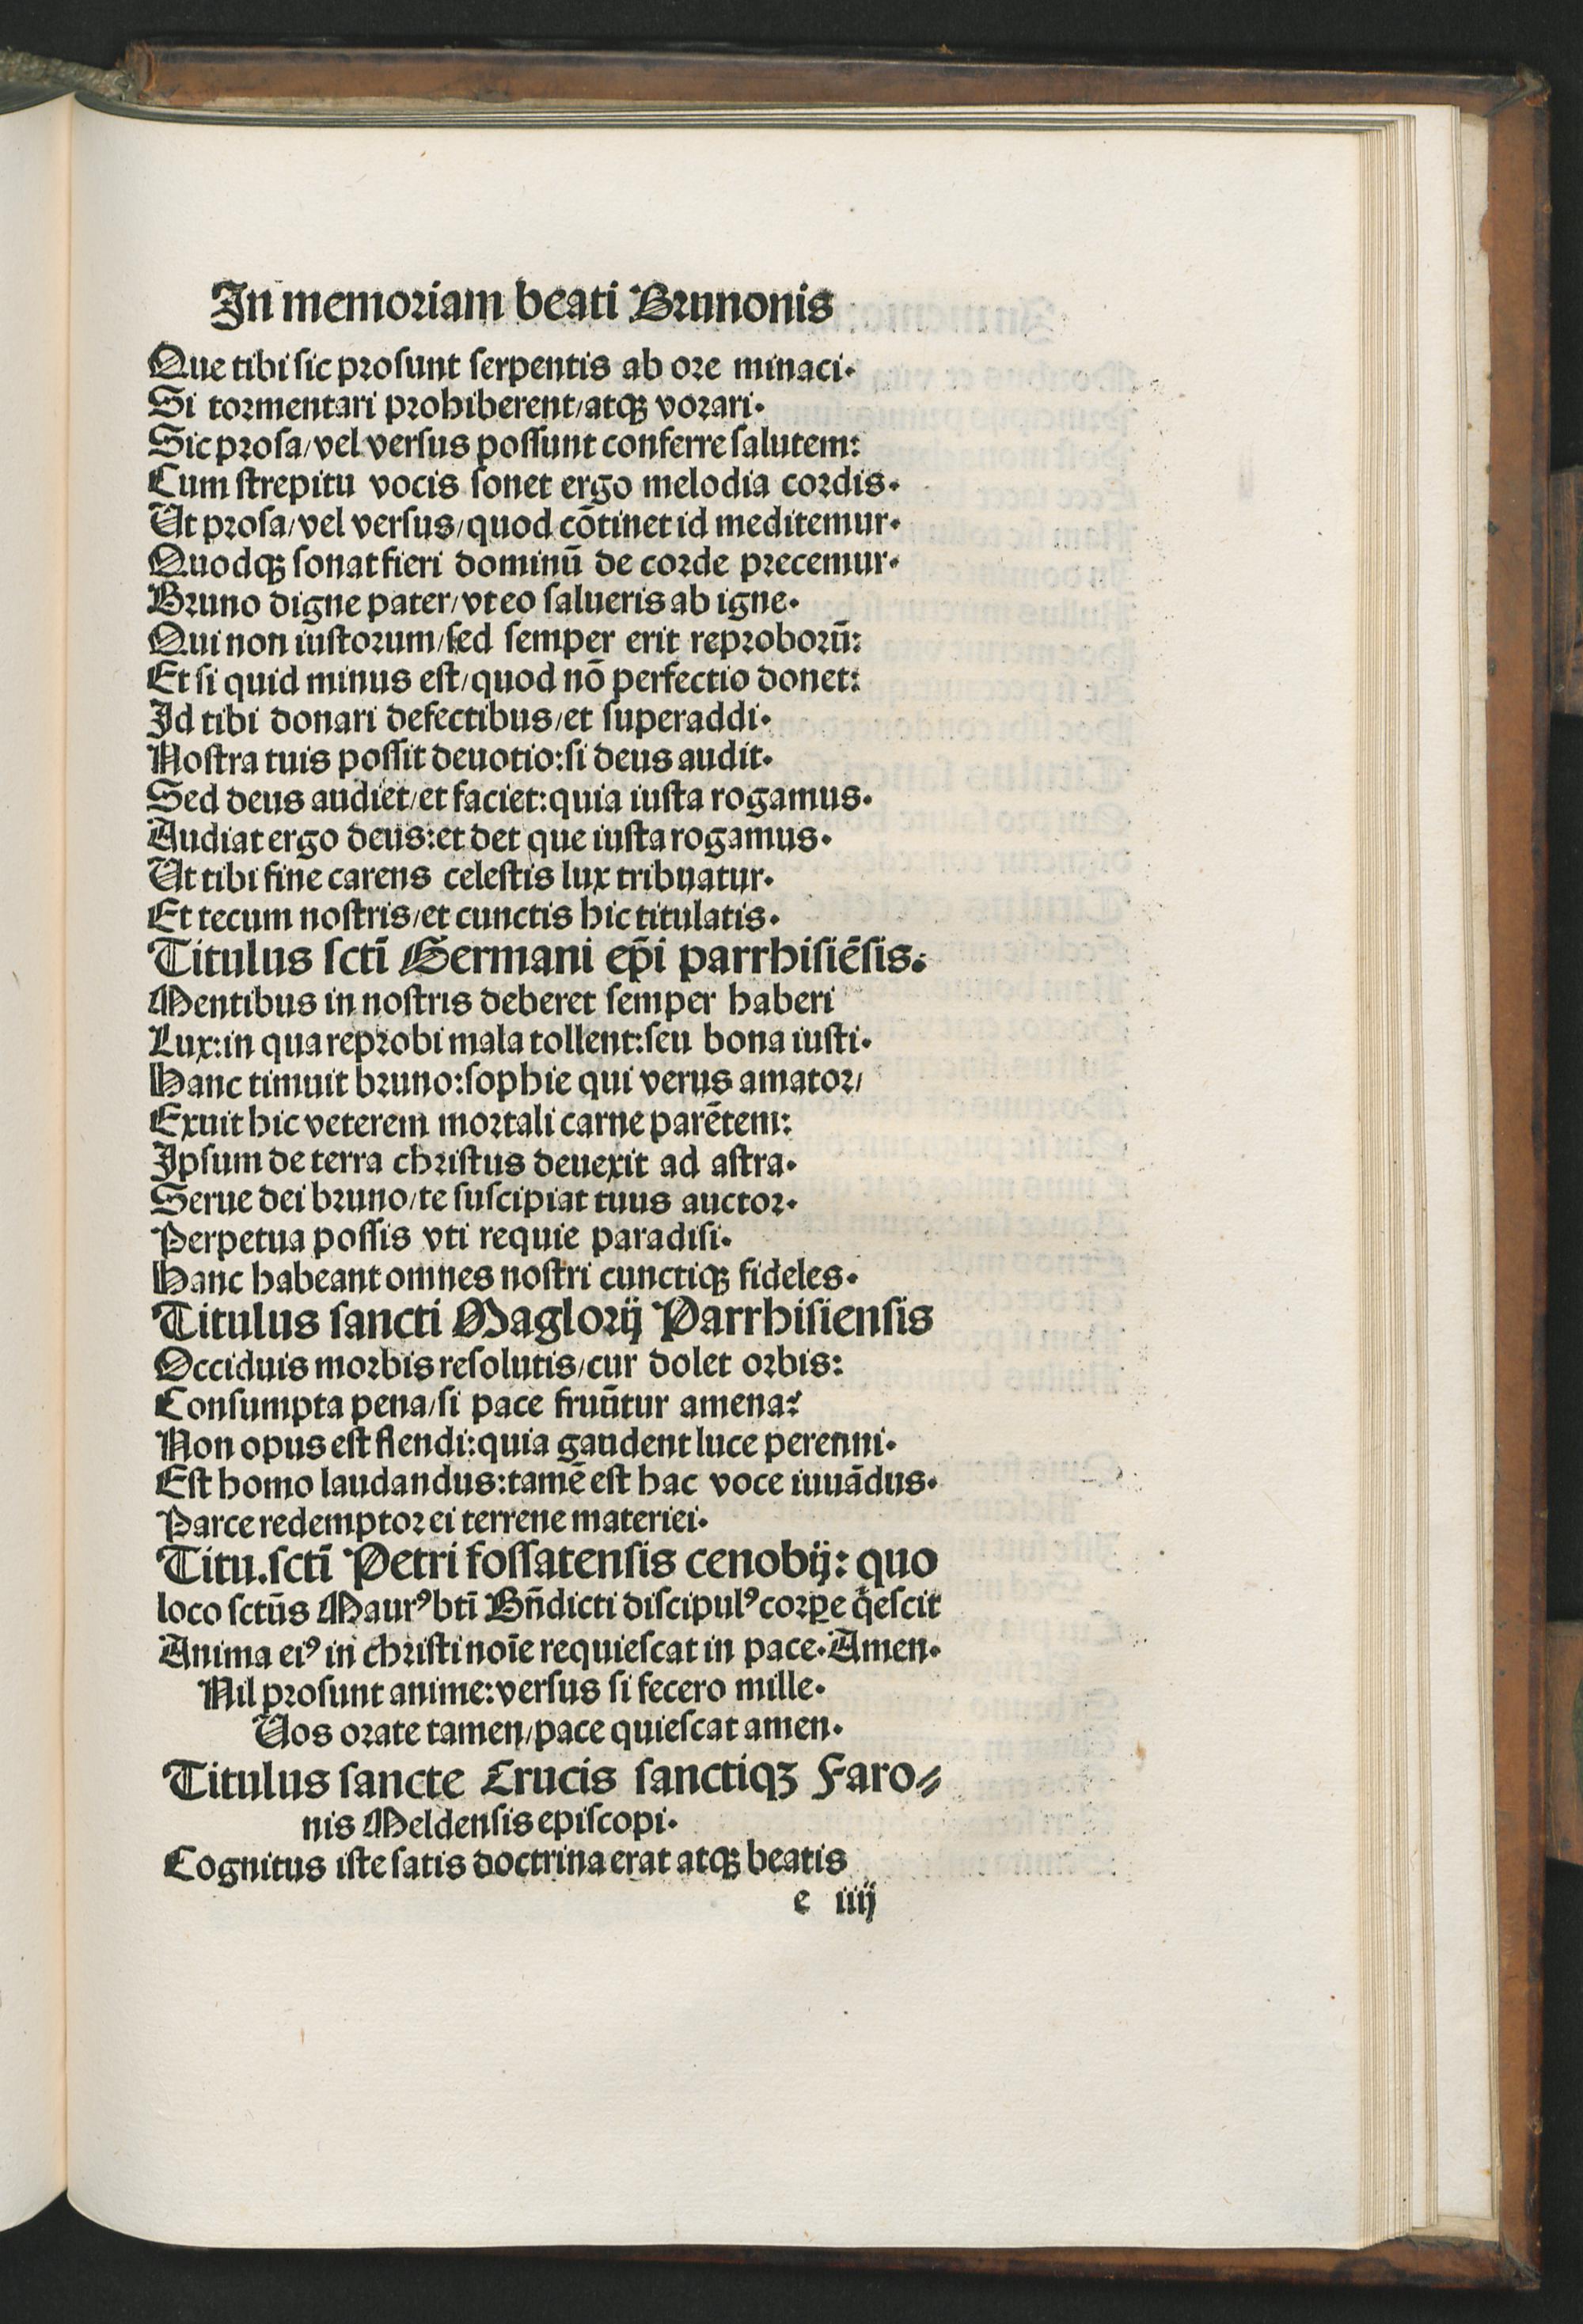 In memoriam beati Brunonis
Que tibi sic prosunt serpentis ab ore minaci.
Si tormentari prohiberent/atqꝫ vorari.
Sic prosa/vel versus possunt conferre salutem:
Cum strepitu vocis sonet ergo melodia cordis.
Ut prosa/vel versus/quod cōtinet id meditemur.
Quodqꝫ sonat fieri dominū de corde precemur.
Bruno digne pater/vt eo salueris ab igne.
Qui non iustorum/sed semper erit reproborū:
Et si quid minus est/quod nō perfectio donet:
Id tibi donari defectibus/et superaddi.
Nostra tuis possit deuotio:si deus audit.
Sed deus audiet/et faciet:quia iusta rogamus.
Audiat ergo deus:et det que iusta rogamus.
Ut tibi fine carens celestis lux tribuatur.
Et tecum nostris/et cunctis hic titulatis.
Titulus sctī Germani ep̄i parrhisiēsis.
Mentibus in nostris deberet semper haberi
Lux:in qua reprobi mala tollent:seu bona iusti.
Hanc timuit bruno:sophie qui verus amator/
Exuit hic veterem mortali carne parētem:
Ipsum de terra christus deuexit ad astra.
Serue dei bruno/te suscipiat tuus auctor.
Perpetua possis vti requie paradisi.
Hanc habeant omnes nostri cunctiqꝫ fideles.
Titulus sancti Maglorij Parrhisiensis
Occiduis morbis resolutis/cur dolet orbis:
Consumpta pena/si pace fruūtur amena?
Non opus est flendi:quia gaudent luce perenni.
Est homo laudandus:tamē est hac voce iuuādus.
Parce redemptor ei terrene materiei.
Titu.sctī Petri fossatensis cenobij: quo
loco sctūs Maurꝰ btī Bn̄dicti discipulꝰ corꝑe q̄escit
Anima eiꝰ in christi noīe requiescat in pace. Amen.
Nil prosunt anime:versus si fecero mille.
Uos orate tamen/pace quiescat amen.
Titulus sancte Crucis sanctiqꝫ Faro⸗
nis Meldensis episcopi.
Cognitus iste satis doctrina erat atqꝫ beatis
e iiij